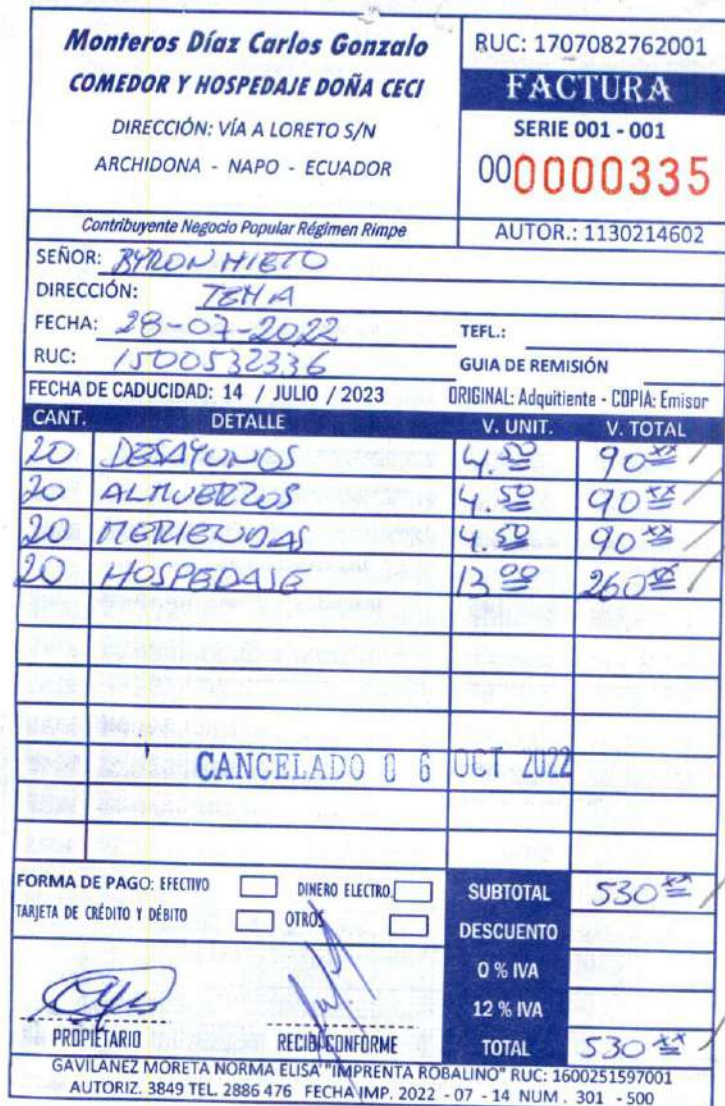 Monteros Díaz Carlos Gonzalo
COMEDOR Y HOSPEDAJE DOÑA CECI
DIRECCIÓN: VÍA A LORETO S/N
ARCHIDONA - NAPO - ECUADOR
Contribuyente Negocio Popular Régimen Rimpe
RUC: 1707082762001
FACTURA
SERIE 001 - 001
000000335
AUTOR.: 1130214602
SEÑOR: BYRON NIETO
DIRECCIÓN: TENA
FECHA: 28-07-2022 TEFL.:
RUC: 1500532336 GUIA DE REMISIÓN
FECHA DE CADUCIDAD: 14 / JULIO / 2023 ORIGINAL: Adquitiente - COPIA: Emisor
CANT. DETALLE V. UNIT. V. TOTAL
20 DESAYUNOS 4.50 90 xx
20 ALMUERZOS 4.50 90 xx
20 MERIENDAS 4.50 90 xx
20 HOSPEDAJE 13.00 260 xx
CANCELADO 06 OCT 2022
FORMA DE PAGO: EFECTIVO DINERO ELECTRO. SUBTOTAL 530 xx
TARJETA DE CRÉDITO Y DÉBITO OTROS DESCUENTO
0 % IVA
12 % IVA
PROPIETARIO RECIBI CONFORME TOTAL 530 xx
GAVILANEZ MORETA NORMA ELISA "IMPRENTA ROBALINO" RUC: 1600251597001
AUTORIZ. 3849 TEL. 2886 476 FECHA IMP. 2022 - 07 - 14 NUM. 301 - 500